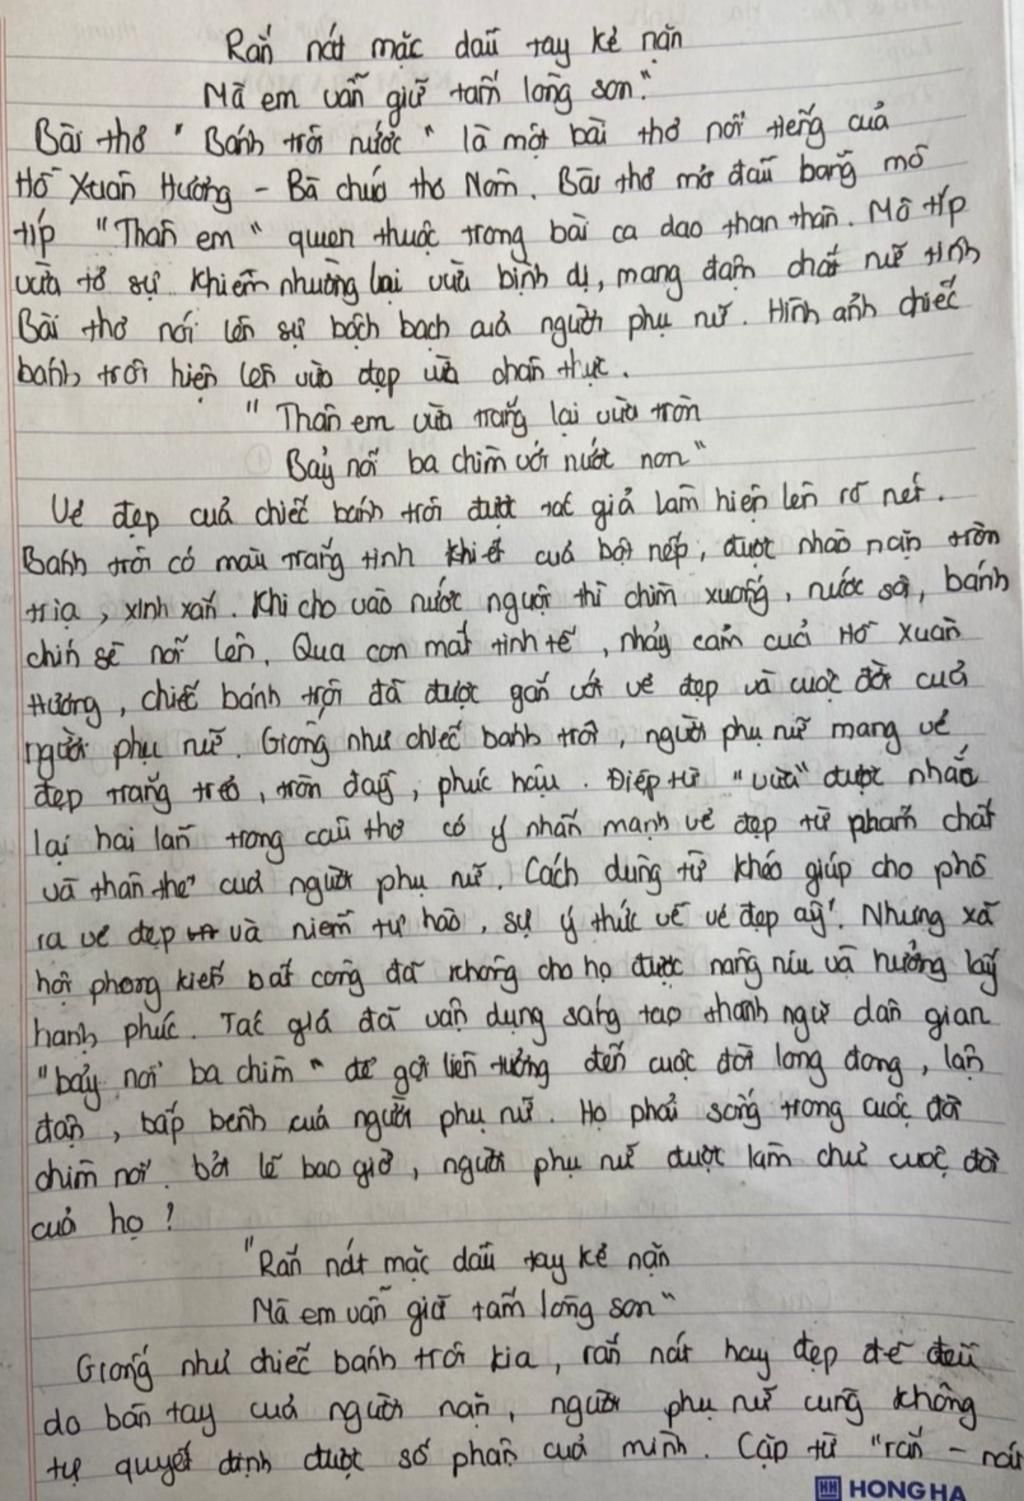 Rắn nát mặc dầu tay kẻ nặn
Mà em vẫn giữ tấm lòng son."
Bài thơ "Bánh trôi nước" là một bài thơ nổi tiếng của
Hồ Xuân Hương - Bà chúa thơ Nôm. Bài thơ mở đầu bằng mô
típ "Thân em" quen thuộc trong bài ca dao than thân. Mô típ
vừa tỏ sự khiêm nhường lại vừa bình dị, mang đậm chất nữ tính
Bài thơ nói lên sự bộch bạch của người phụ nữ. Hình ảnh chiếc
bánh trôi hiện lên vừa đẹp vừa chân thực.
"Thân em vừa trắng lại vừa tròn
Bảy nổi ba chìm với nước non"
Vẻ đẹp của chiếc bánh trôi được tác giả làm hiện lên rõ nét.
Bánh trôi có màu trắng tinh khiết của bột nếp, được nhào nặn tròn
trịa, xinh xắn. Khi cho vào nước nguội thì chìm xuống, nước sôi, bánh
chín sẽ nổi lên. Qua con mắt tinh tế, nhảy cảm của Hồ Xuân
Hương, chiếc bánh trôi đã được gắn với vẻ đẹp và cuộc đời của
người phụ nữ. Giống như chiếc bánh trôi, người phụ nữ mang vẻ
đẹp trắng trẻo, tròn đầy, phúc hậu. Điệp từ "vừa" được nhắc
lại hai lần trong câu thơ có ý nhấn mạnh vẻ đẹp từ phẩm chất
và thân thể của người phụ nữ. Cách dùng từ khéo giúp cho phô
ra vẻ đẹp và niềm tự hào, sự ý thức về vẻ đẹp ấy. Nhưng xã
hội phong kiến bất công đã không cho họ được nâng niu và hưởng lấy
hạnh phúc. Tác giả đã vận dụng sáng tạo thành ngữ dân gian
"bảy nổi ba chìm" để gợi liên tưởng đến cuộc đời long đong, lận
đận, bấp bênh của người phụ nữ. Họ phải sống trong cuộc đời
chìm nổi. bởi lẽ bao giờ, người phụ nữ được làm chủ cuộc đời
của họ!
"Rắn nát mặc dầu tay kẻ nặn
Mà em vẫn giữ tấm lòng son"
Giống như chiếc bánh trôi kia, rắn nát hay đẹp đẽ đều
do bàn tay của người nặn, người phụ nữ cũng không
tự quyết định được số phận của mình. Cặp từ "rắn - nát
HH HONG HA